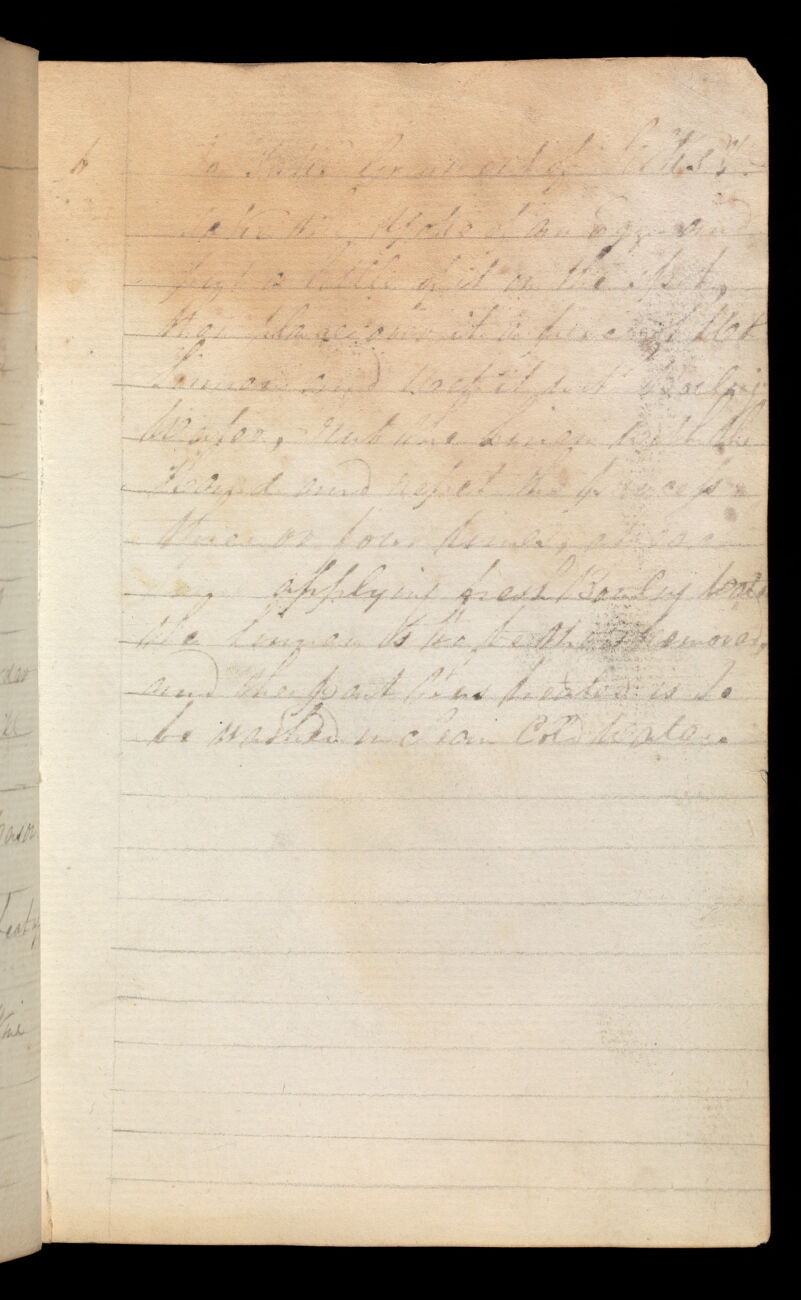 6 To take Grease out of Cloths &c
Take the Yolk of an Egg and
put a little of it on the spot,
than place over it a piece of Wet
Linnen and wet it with Boiling
Water, rub the Linen with the
Hand and repet the process
three or four times, at each
time applying fresh Boiling Water
the Linnen is to be then removed,
and the part thus treated is to
be washed in clean Cold Water.